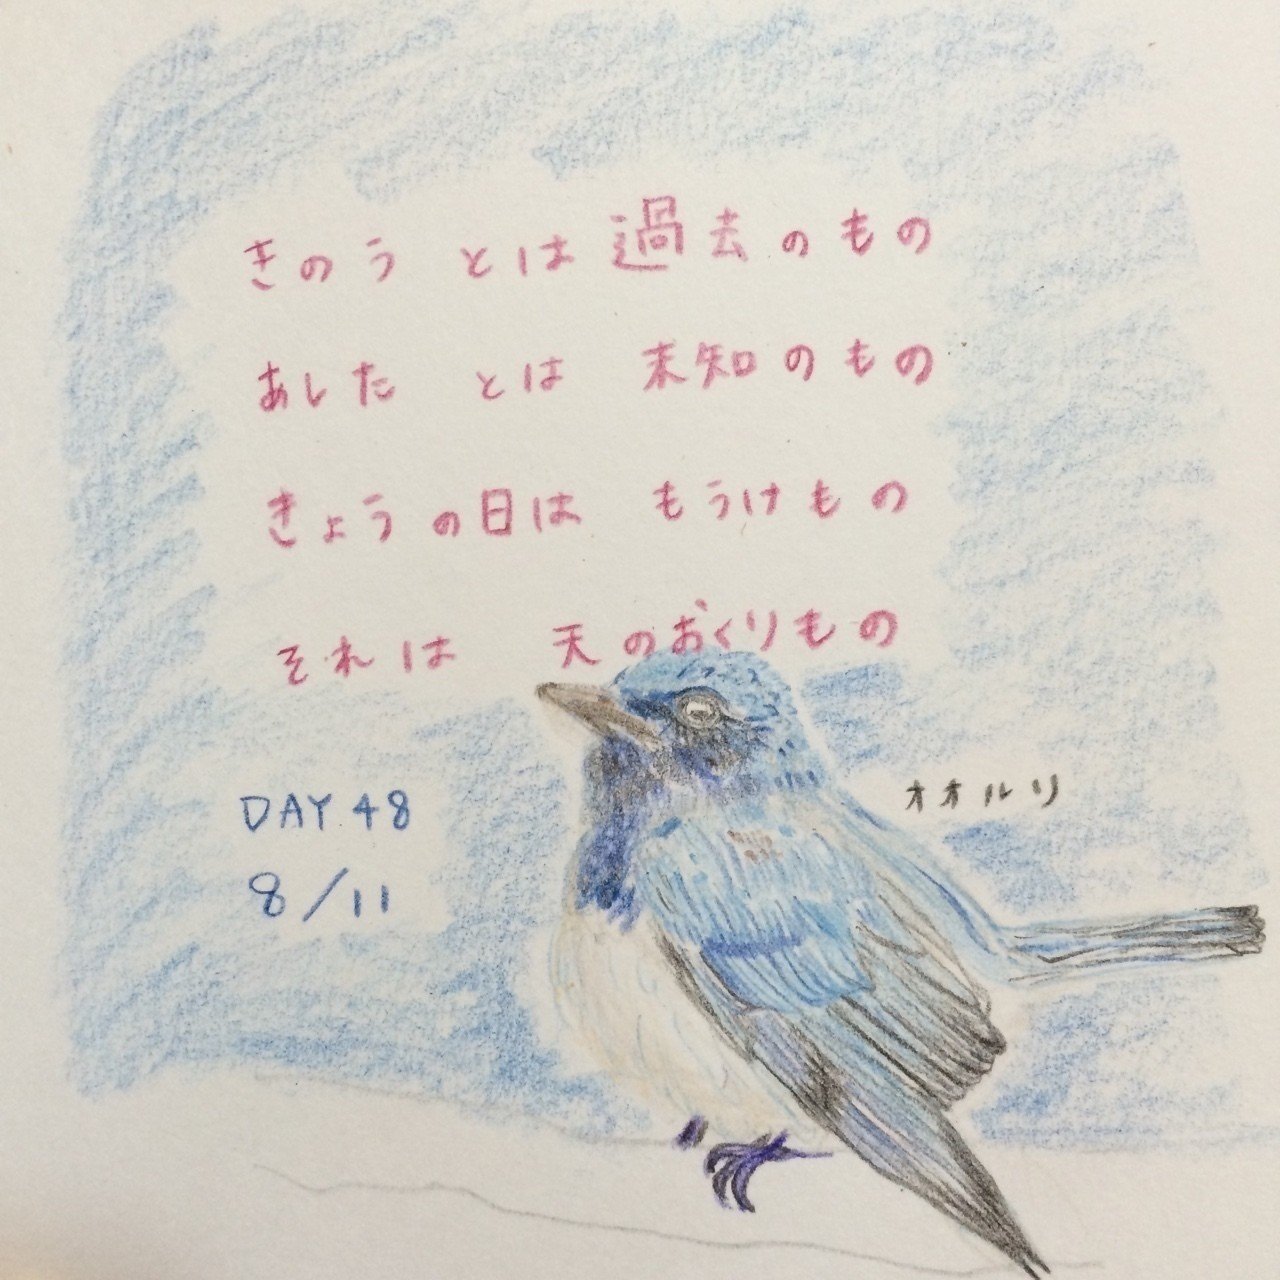 きのう とは 過去のもの
あした とは 未知のもの
きょうの日は もうけもの
それは 天のおくりもの
オオルリ
DAY 48
8/11